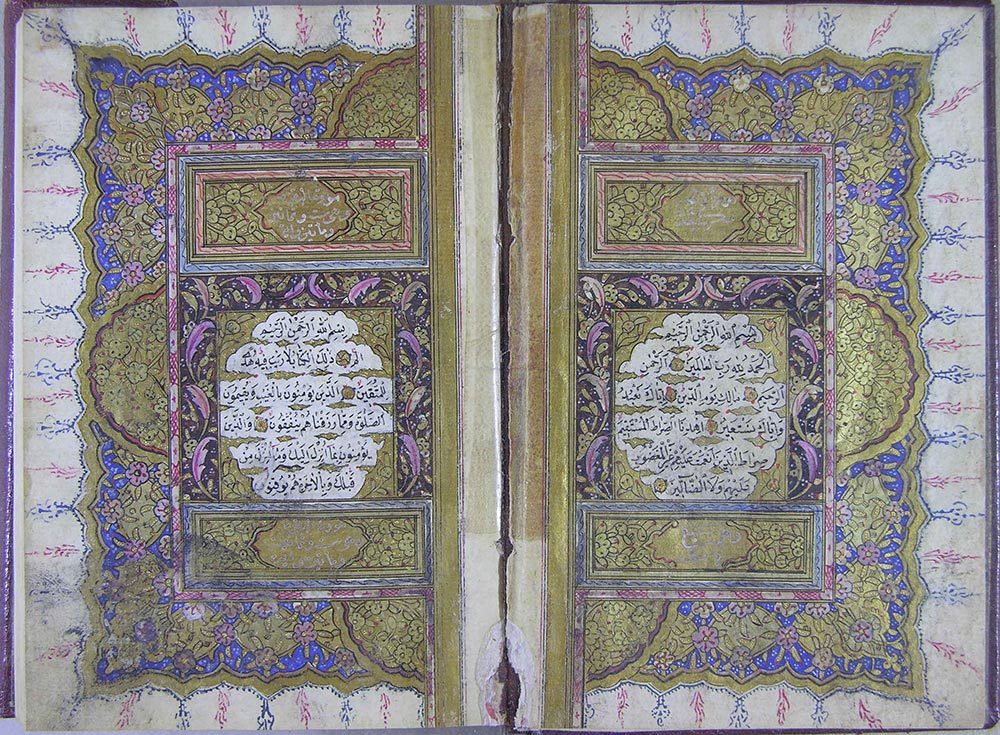 بِسْمِ اللهِ الرَّحْمٰنِ الرَّحِيمِ
اَلْحَمْدُ لِلّٰهِ رَبِّ الْعَالَمِينَ اَلرَّحْمٰنِ
الرَّحِيمِ مَالِكِ يَوْمِ الدِّينِ اِيَّاكَ نَعْبُدُ
وَاِيَّاكَ نَسْتَعِينُ اِهْدِنَا الصِّرَاطَ الْمُسْتَقِيمَ
صِرَاطَ الَّذِينَ اَنْعَمْتَ عَلَيْهِمْ غَيْرِ الْمَغْضُوبِ
عَلَيْهِمْ وَلَا الضَّالِّينَ
بِسْمِ اللهِ الرَّحْمٰنِ الرَّحِيمِ
الٓمٓ ذٰلِكَ الْكِتَابُ لَا رَيْبَ فِيهِ هُدًى
لِلْمُتَّقِينَ اَلَّذِينَ يُؤْمِنُونَ بِالْغَيْبِ وَيُقِيمُونَ
الصَّلٰوةَ وَمِمَّا رَزَقْنَاهُمْ يُنْفِقُونَ وَالَّذِينَ
يُؤْمِنُونَ بِمَا اُنْزِلَ اِلَيْكَ وَمَا اُنْزِلَ مِنْ
قَبْلِكَ وَبِالْاٰخِرَةِ هُمْ يُوقِنُونَ